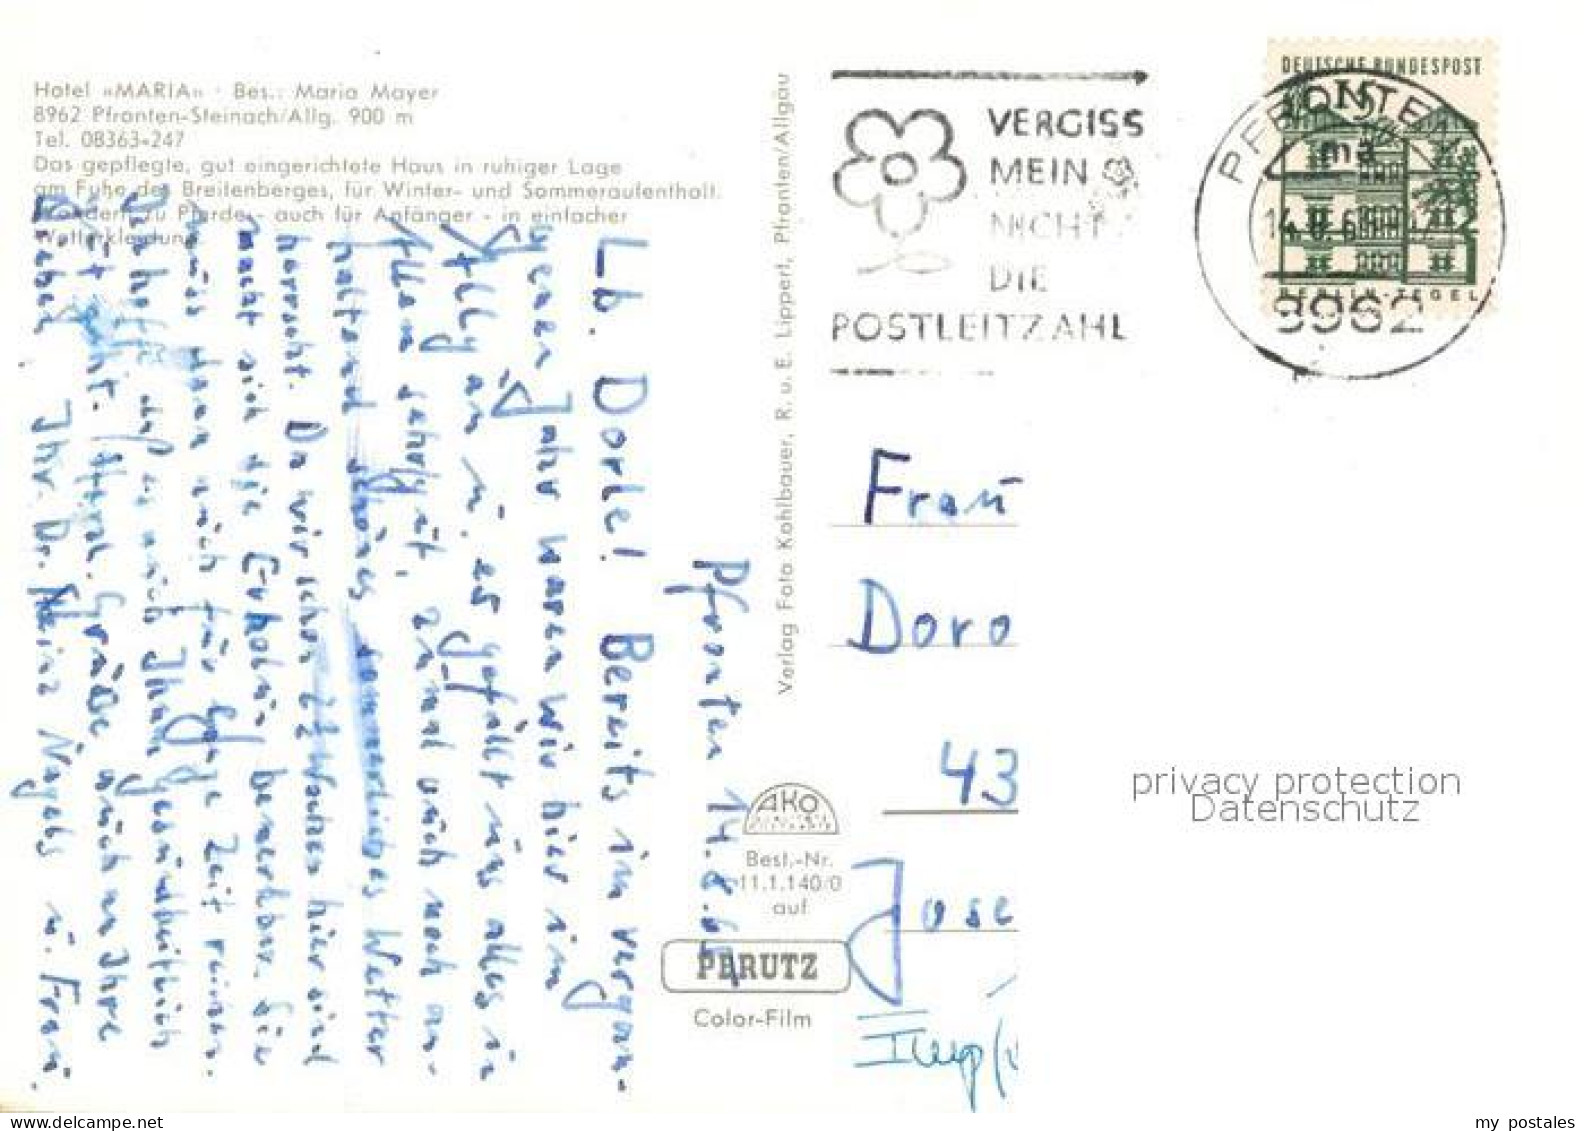 Hotel «MARIA» · Bes.: Maria Mayer
8962 Pfronten-Steinach/Allg. 900 m
Tel. 08363-247
Das gepflegte, gut eingerichtete Haus in ruhiger Lage
am Fuße des Breitenberges, für Winter- und Sommeraufenthalt.
Wandern zu Pferde - auch für Anfänger - in einfacher
Wetterkleidung.
Pfronten 14.8.65
Lb. Dorle! Bereits im vergan-
genen Jahr waren wir hier im
Allgäu u. es gefällt uns alles in
Allem sehr gut, zumal auch noch an-
haltend schönes sommerliches Wetter
herrscht. Da wir schon 2½ Wochen hier sind
macht sich die Erholung bemerkbar. Sie
muss dann auch für lange Zeit reichen.
Ich hoffe, daß es auch Ihnen gesundheitlich
gut geht. Herzl. Grüße auch an Ihre
Lieben Ihr Dr. Heinz Nagels u. Frau.
Verlag Foto Kohlbauer, R. u. E. Lipperl, Pfronten/Allgäu
AKO
Best.-Nr.
11.1.140/0
auf
PERUTZ
Color-Film
VERGISS
MEIN
NICHT
DIE
POSTLEITZAHL
DEUTSCHE BUNDESPOST
15
BERLIN-TEGEL
PFRONTEN
ma
8962
Frau
Doro
43
Jose
privacy protection
Datenschutz
www.delcampe.net
my_postales